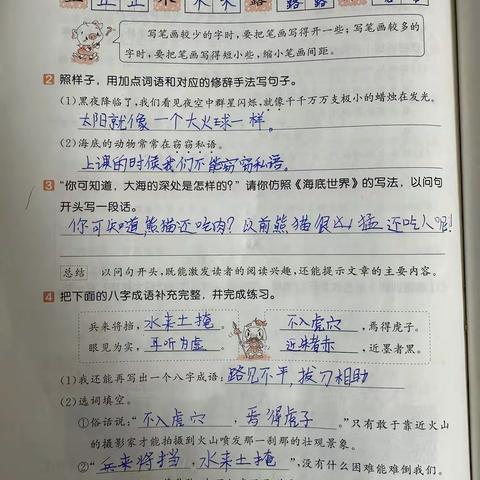 写笔画较少的字时,要把笔画写得开一些;写笔画较多的
字时,要把笔画写得短小些,缩小笔画间距。
2 照样子,用加点词语和对应的修辞手法写句子。
(1)黑夜降临了,我们看见夜空中群星闪烁,就像千千万万支极小的蜡烛在发光。
太阳就像一个大火球一样。
(2)海底的动物常常在窃窃私语。
上课的时侯我们不能窃窃私语。
3 “你可知道,大海的深处是怎样的?”请你仿照《海底世界》的写法,以问句
开头写一段话。
你可知道,熊猫还吃肉?以前熊猫很凶猛还吃人呢!
总结 以问句开头,既能激发读者的阅读兴趣,还能提示文章的主要内容。
4 把下面的八字成语补充完整,并完成练习。
兵来将挡,水来土掩。 不入虎穴,焉得虎子。
眼见为实,耳听为虚。 近朱者赤,近墨者黑。
(1)我还能再写出一个八字成语:路见不平,拔刀相助
(2)选词填空。
①俗话说:“不入虎穴,焉得虎子。”只有敢于靠近火山
的摄影家才能拍摄到火山喷发那一刹那的壮观景象。
②“兵来将挡,水来土掩”,没有什么困难能难倒我们。